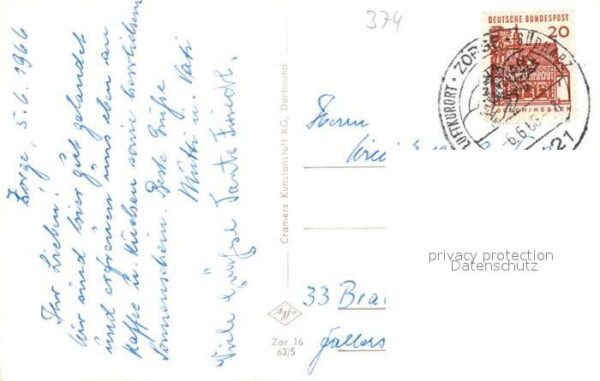 Zorge, 5.6.1966
Ihr Lieben!
Wir sind hier gut gelandet
und erfreuen uns eben an
Kaffee u. Kuchen sowie herrlichem
Sonnenschein. Beste Grüße
Mutti u. Vati
Viele Grüße Tante Friedl.
Cramers Kunstanstalt KG, Dortmund
Zor 16
63/5
374
DEUTSCHE BUNDESPOST
20
LUFTKURORT · ZORGE · SÜDHARZ
6.6.66
21
Herrn
33 Bra
privacy protection
Datenschutz